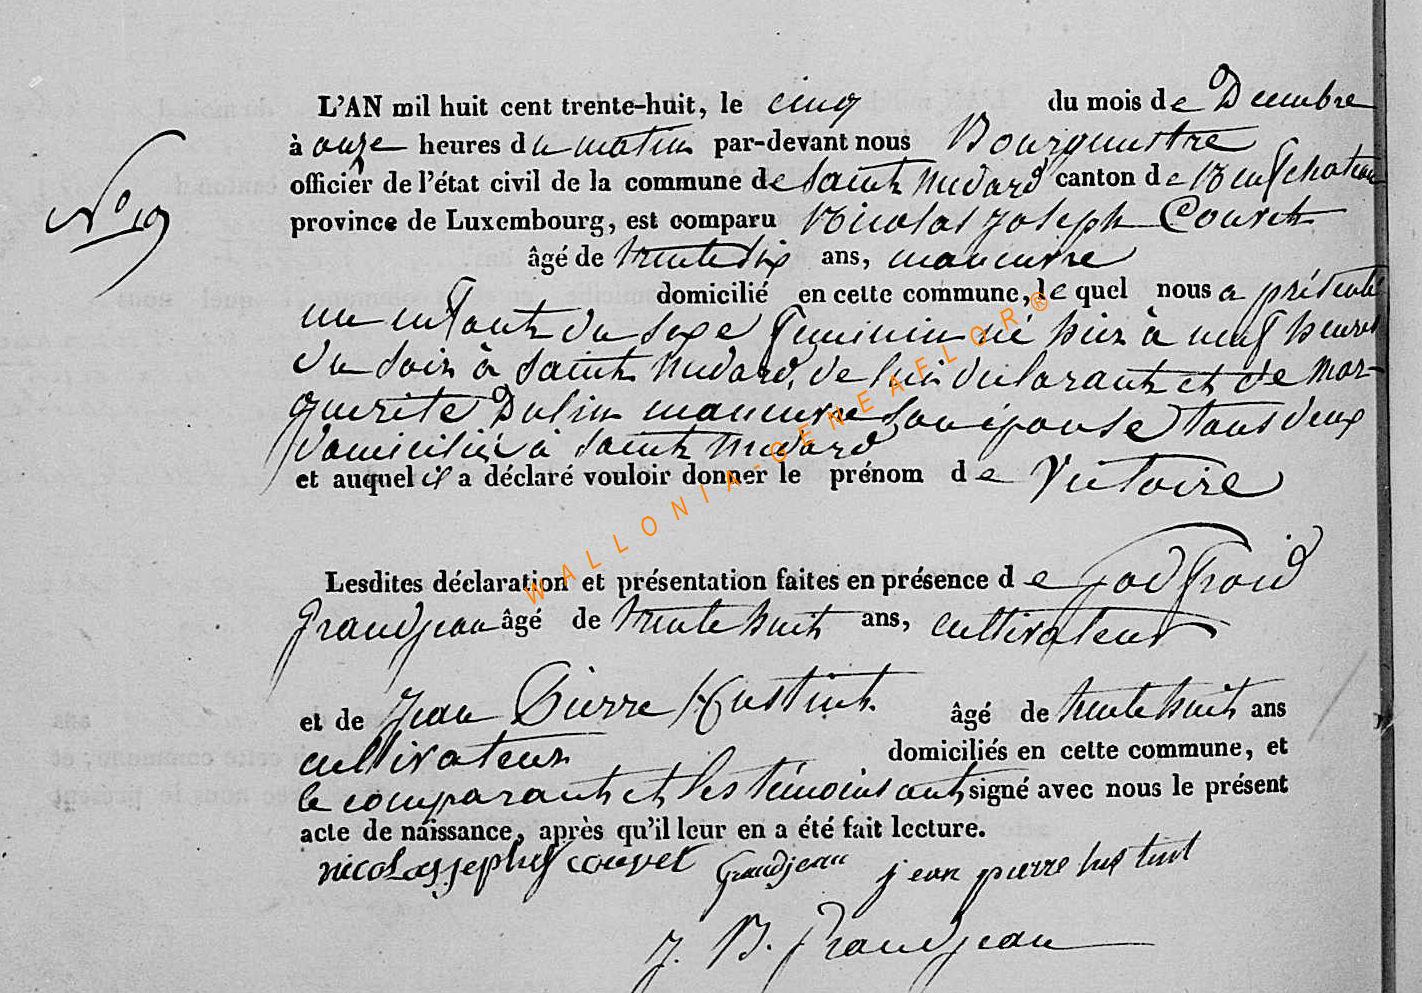 L'AN mil huit cent trente-huit, le cinq du mois de Decembre
à onze heures du matin par-devant nous Bourgmestre
officier de l'état civil de la commune de Saint Medard canton de Neufchateau
province de Luxembourg, est comparu Nicolas Joseph Couvet
N° 19
âgé de trente six ans, manœuvre
domicilié en cette commune, le quel nous a présenté
un enfant du sexe feminin né hier à neuf heures
du soir à Saint Medard, de lui déclarant et de Mar-
guerite Dulin manœuvre son épouse tous deux
domiciliés à Saint Medard
et auquel il a déclaré vouloir donner le prénom de Victoire
WALLONIA-GENEAFLOR®
Lesdites déclaration et présentation faites en présence de Godfroid
Grandjean âgé de trente huit ans, cultivateur
et de Jean Pierre Hustin âgé de trente huit ans
cultivateur domiciliés en cette commune, et
le comparant et les témoins ont signé avec nous le présent
acte de naissance, après qu'il leur en a été fait lecture.
nicolas jseph couvet Grandjean jean pierre hustint
J. B. Grandjean